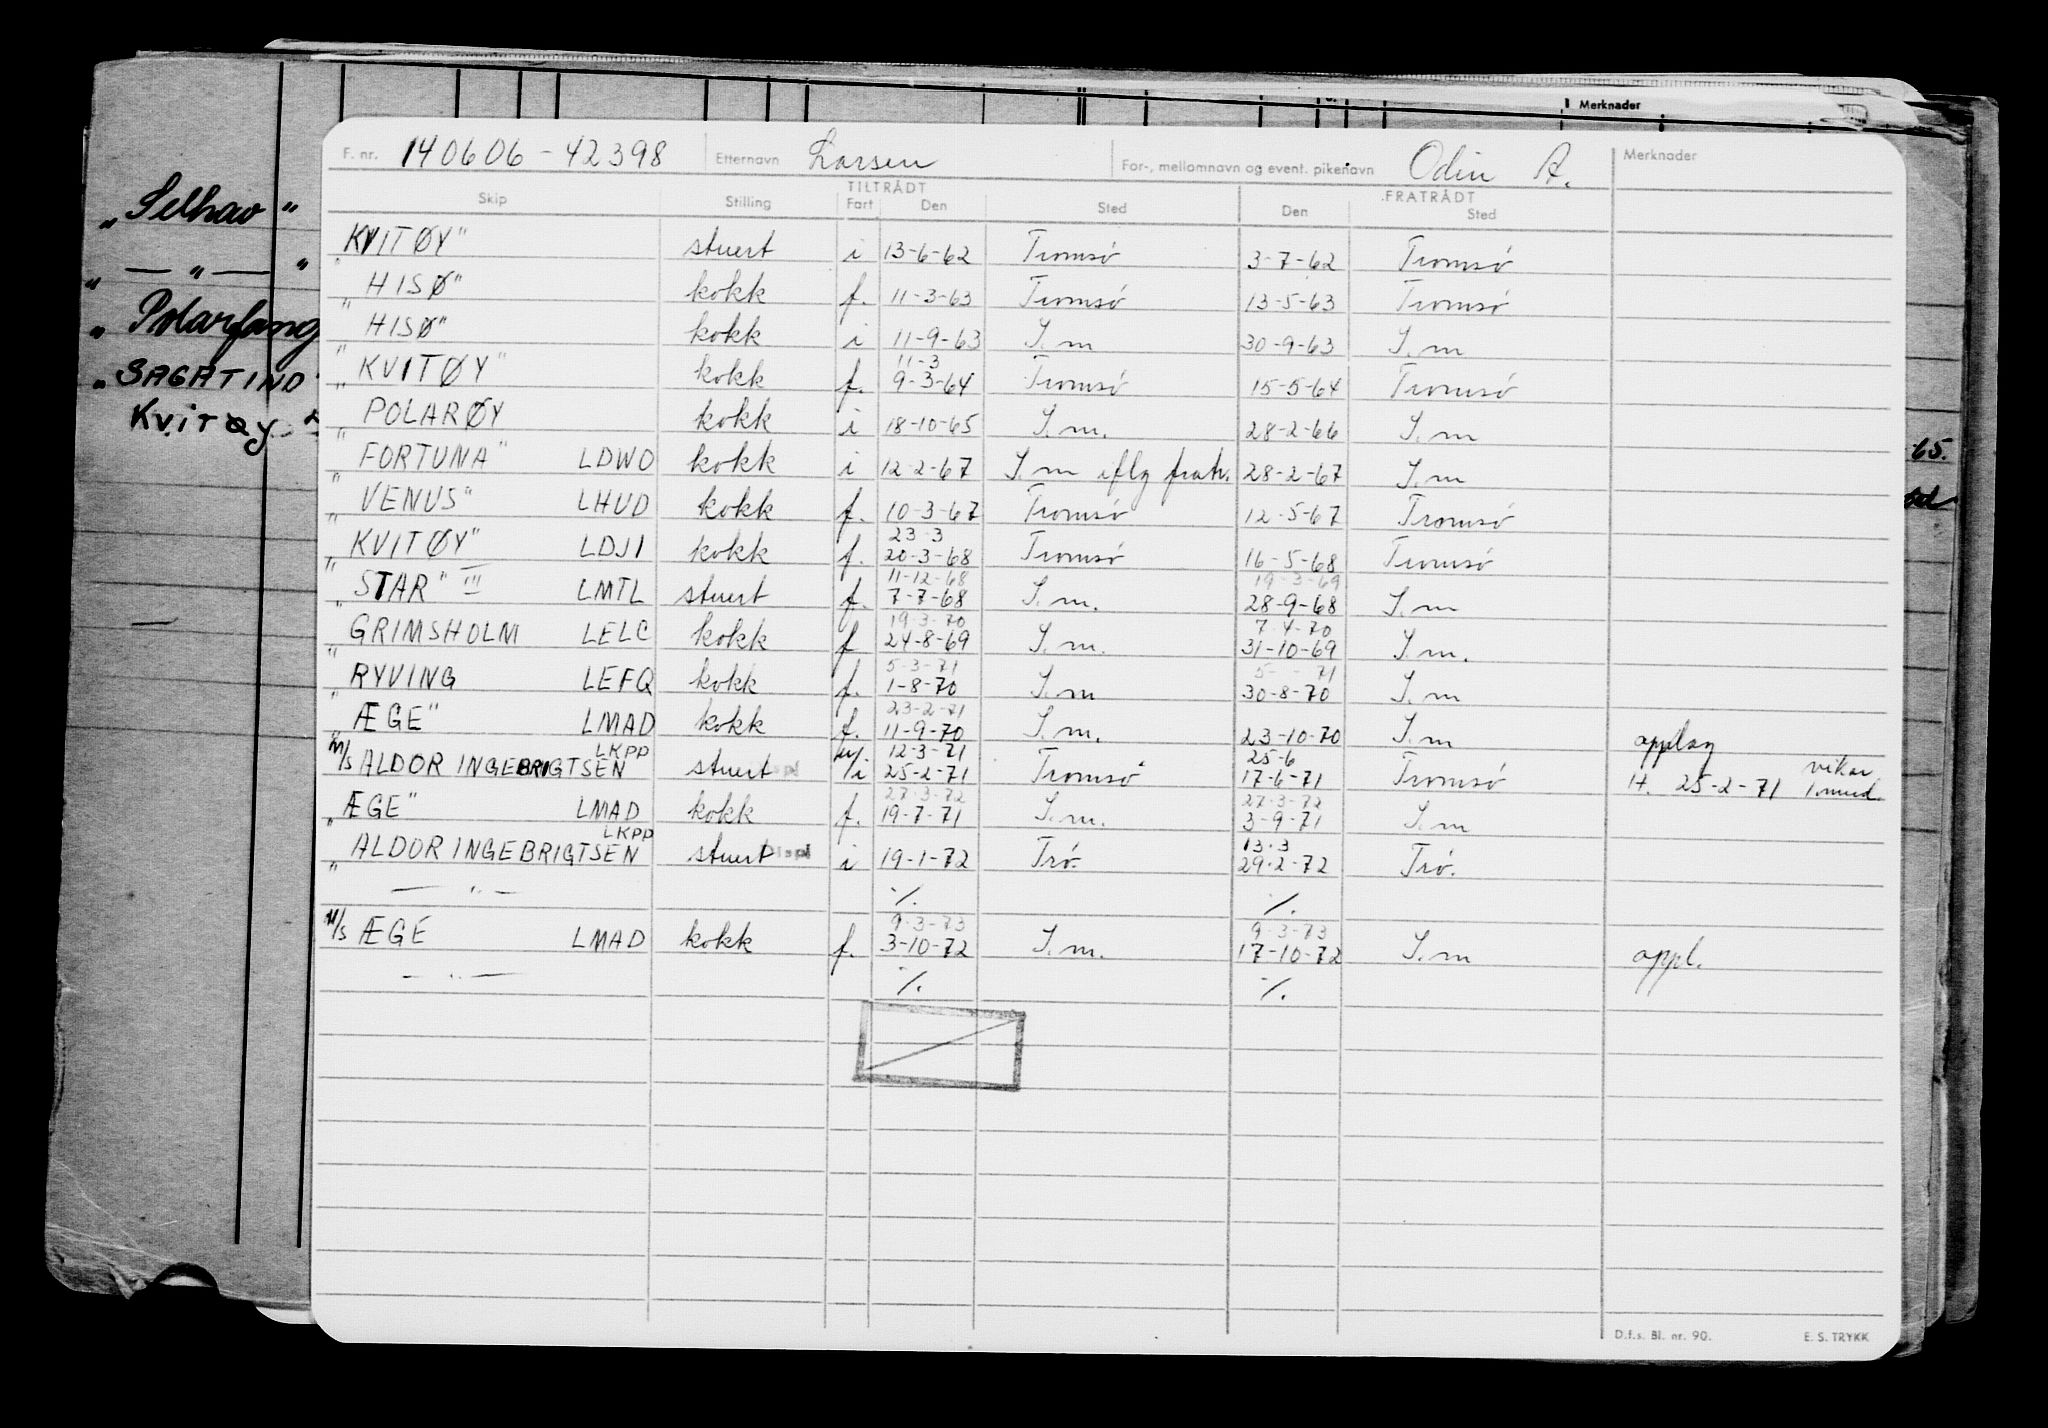 Merknader
F. nr. 140606-42398 Etternavn Larsen For-, mellomnavn og event. pikenavn Odin A. Merknader
TILTRÅDT FRATRÅDT
Skip Stilling Fart Den Sted Den Sted
"KVITØY" stuert i 13-6-62 Tromsø 3-7-62 Tromsø
"HISØ" kokk f. 11-3-63 Tromsø 13-5-63 Tromsø
"HISØ" kokk i 11-9-63 S.m 30-9-63 S.m
11-3
"KVITØY" kokk f. 9-3-64 Tromsø 15-5-64 Tromsø
"POLARØY kokk i 18-10-65 S.m. 28-2-66 S.m
"FORTUNA" LDWO kokk i 12-2-67 S.m iflg fratr. 28-2-67 S.m
"VENUS" LHUD kokk f. 10-3-67 Tromsø 12-5-67 Tromsø
23-3
"KVITØY" LDJI kokk f. 20-3-68 Tromsø 16-5-68 Tromsø
11-12-68 19-3-69
"STAR" III LMTL stuert f. 7-7-68 S.m. 28-9-68 S.m
19-3-70 7-4-70
"GRIMSHOLM LELC kokk f 24-8-69 S.m. 31-10-69 S.m.
5-3-71 5- -71
"RYVING LEFQ kokk f. 1-8-70 S.m 30-8-70 S.m
23-2-71
"ÆGE" LMAD kokk f. 11-9-70 S.m. 23-10-70 S.m opplag
LKPP 12-3-71 25-6 vikar
M/S ALDOR INGEBRIGTSEN stuert u/i 25-2-71 Tromsø 17-6-71 Tromsø H. 25-2-71 1 mnd.
27-3-72 27-3-72
"ÆGE" LMAD kokk f. 19-7-71 S.m. 3-9-71 S.m
LKPP 13-3
"ALDOR INGEBRIGTSEN stuert i 19-1-72 Trø. 29-2-72 Trø.
— " — ./. ./.
9-3-73 9-3-73
M/S ÆGE LMAD kokk f. 3-10-72 S.m. 17-10-72 S.m appl.
— " — ./. ./.
D.f.s. Bl. nr. 90. E. S. TRYKK
"Selhav"
"— " —"
"Polarfang
"SAGATIND"
Kvitøy
65.